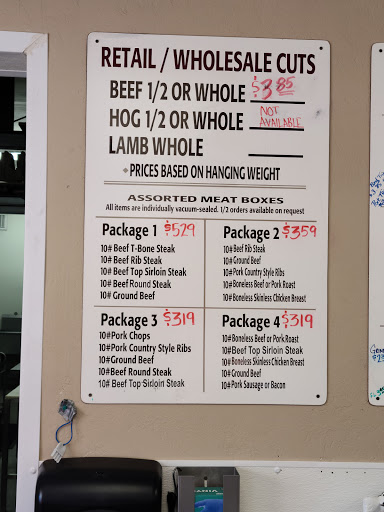 RETAIL / WHOLESALE CUTS
BEEF 1/2 OR WHOLE $3.85
HOG 1/2 OR WHOLE NOT AVAILABLE
LAMB WHOLE
PRICES BASED ON HANGING WEIGHT
ASSORTED MEAT BOXES
All items are individually vacuum-sealed. 1/2 orders available on request
Package 1 $529
10# Beef T-Bone Steak
10# Beef Rib Steak
10# Beef Top Sirloin Steak
10# Beef Round Steak
10# Ground Beef
Package 2 $359
10# Beef Rib Steak
10# Ground Beef
10# Pork Country Style Ribs
10# Boneless Beef or Pork Roast
10# Boneless Skinless Chicken Breast
Package 3 $319
10# Pork Chops
10# Pork Country Style Ribs
10# Ground Beef
10# Beef Round Steak
10# Beef Top Sirloin Steak
Package 4 $319
10# Boneless Beef or Pork Roast
10# Beef Top Sirloin Steak
10# Boneless Skinless Chicken Breast
10# Ground Beef
10# Pork Sausage or Bacon